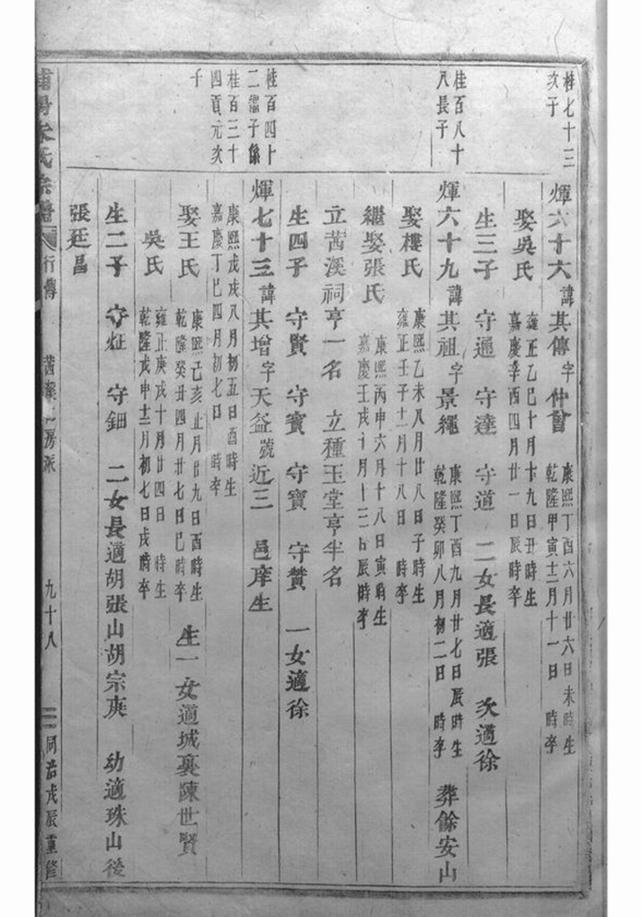 桂七十三
次子
輝六十六諱其傳字仲會
康熙丁酉六月廿六日未時生
乾隆甲寅十二月十一日 時卒
娶吳氏
雍正乙巳十月十九日丑時生
嘉慶辛酉四月廿一日辰時卒
生三子 守通 守達 守道 二女長適張 次適徐
桂百八十
八長子
輝六十九諱其祖字景繩
康熙丁酉九月廿七日辰時生
乾隆癸卯八月初二日 時卒
葬餘安山
娶樓氏
康熙乙未八月廿八日子時生
雍正壬子十二月十八日 時卒
繼娶張氏
康熙丙申六月十八日寅時生
嘉慶壬戌十月十三日辰時卒
立茜溪祠享一名 立種玉堂享半名
生四子 守賢 守實 守寶 守贊 一女適徐
桂百四十
二 子係
桂百三十
四貢元次
子
輝七十三諱其增字天益號近三 邑庠生
康熙戊戌八月初五日酉時生
嘉慶丁巳四月初七日 時卒
娶王氏
康熙己亥正月廿九日酉時生
乾隆癸丑四月廿七日巳時卒
生一女適城裏陳世賢
吳氏
雍正庚戌十月廿四日 時生
乾隆戊申十二月初七日戌時卒
生二子 守 守鈿 二女長適胡張山胡宗庚 幼適珠山後
張廷昌
浦陽朱氏宗譜
行傳
茜溪 房派
九十八
同治戊辰重修